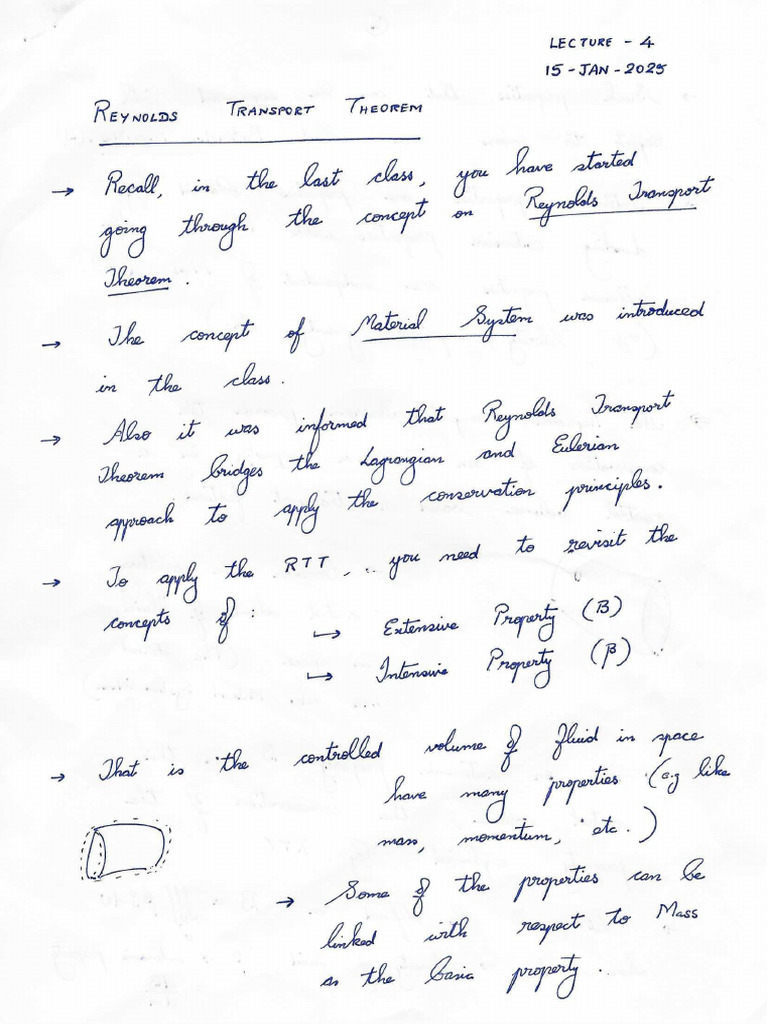 LECTURE - 4
15 - JAN - 2025
REYNOLDS TRANSPORT THEOREM
→ Recall, in the last class, you have started
going through the concept on Reynolds Transport
Theorem.
→ The concept of Material System was introduced
in the class.
→ Also it was informed that Reynolds Transport
Theorem bridges the Lagrangian and Eulerian
approach to apply the conservation principles.
→ To apply the RTT, you need to revisit the
concepts of :
↳ Extensive Property (B)
↳ Intensive Property (β)
→ That is the controlled volume of fluid in space
have many properties (e.g like
mass, momentum, etc.)
→ Some of the properties can be
linked with respect to Mass
as the basic property.